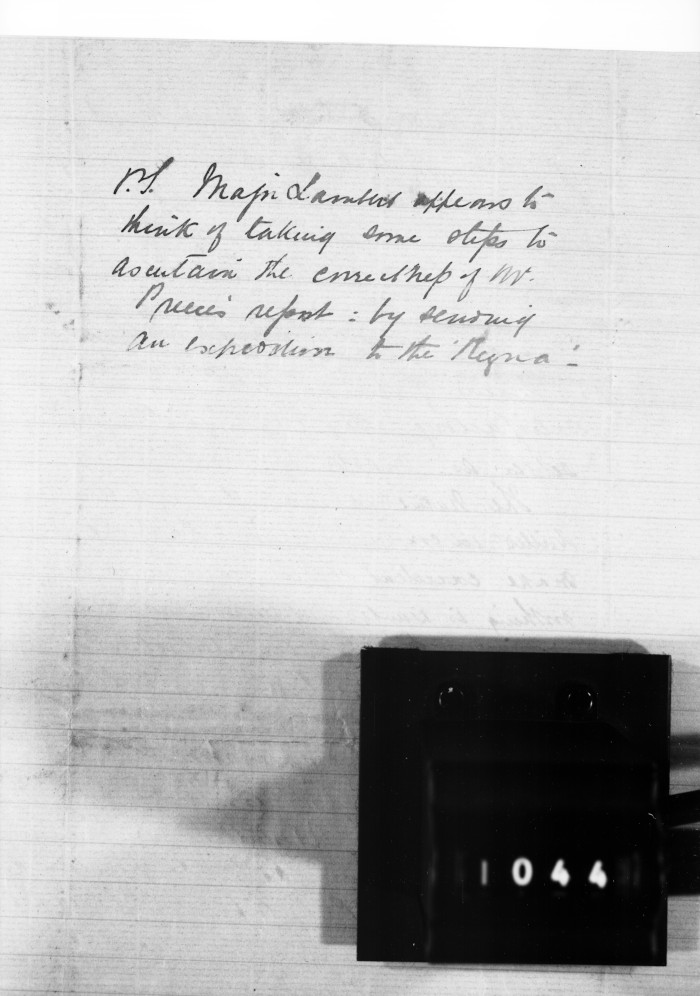 P.S. Major Lambert appears to
think of taking some steps to
ascertain the correctness of Mr.
Preece's report: by sending
an expedition to the 'Regna'-
1044